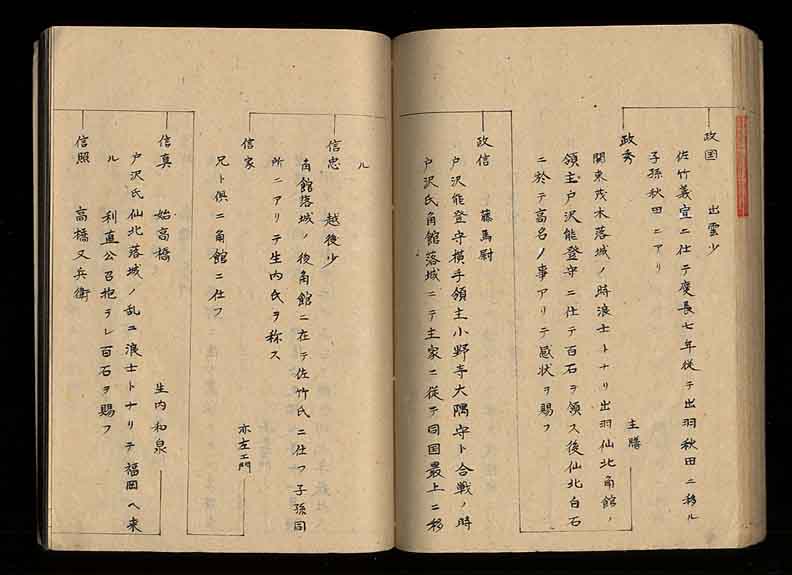 政国　出雲少
佐竹義宣ニ仕テ慶長七年従テ出羽秋田ニ移ル
子孫秋田ニアリ
政秀　主膳
関東茂木落城ノ時浪士トナリ出羽仙北角館ノ
領主戸沢能登守ニ仕テ百石ヲ領ス後仙北白石
ニ於テ高名ノ事アリテ感状ヲ賜フ
政信　藤馬尉
戸沢能登守横手領主小野寺大隅守ト合戦ノ時
戸沢氏角館落城ニテ主家ニ従テ同国最上ニ移
ル
信忠　越後少
角館落城ノ後角館ニ在テ佐竹氏ニ仕フ子孫同
所ニアリテ生内氏ヲ称ス
信家　亦左エ門
兄ト倶ニ角館ニ仕フ
信真　始高橋　生内和泉
戸沢氏仙北落城ノ乱ニ浪士トナリテ福岡ヘ来
ル　利直公召抱ラレ百石ヲ賜フ
信照　高橋又兵衛